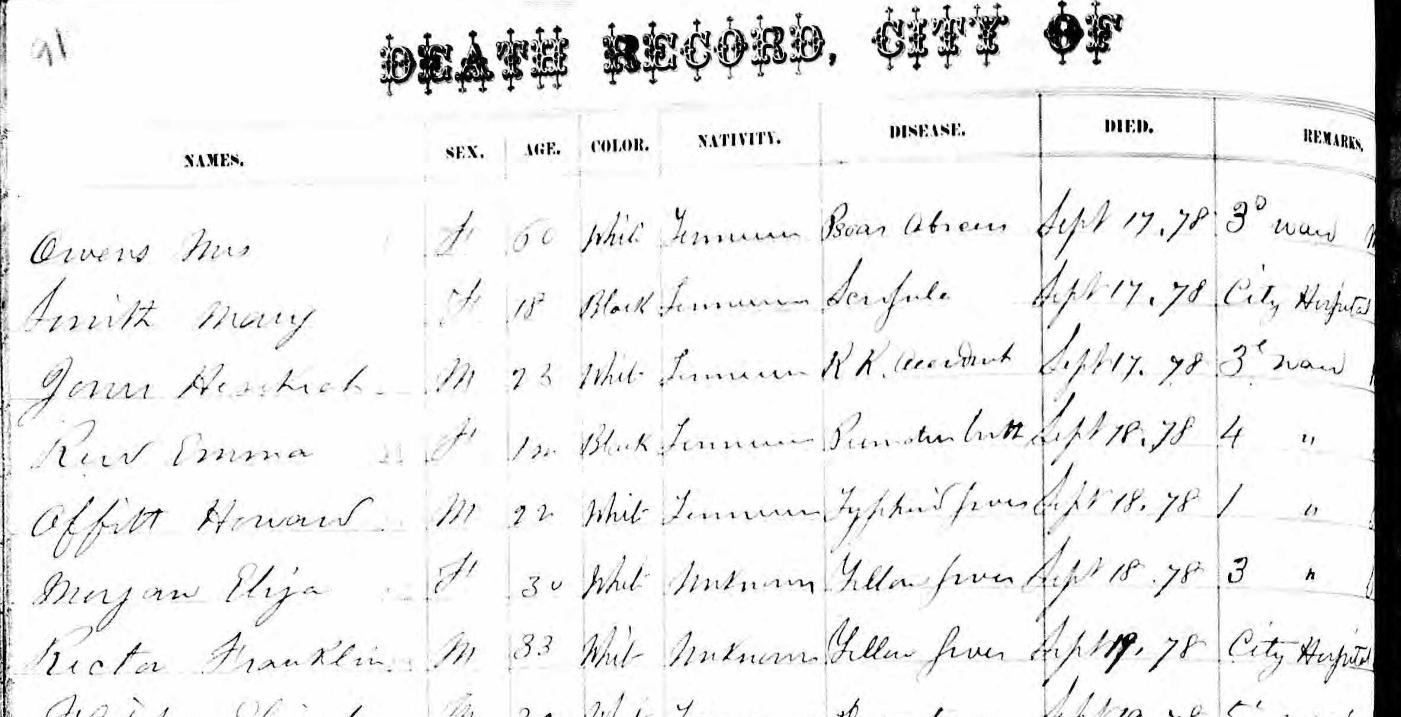 91
DEATH RECORD, CITY OF
NAMES. SEX. AGE. COLOR. NATIVITY. DISEASE. DIED. REMARKS.
Owens Mrs F 60 White Tennessee Abscess Sept 17. 78 3d ward
Smith Mary F 18 Black Tennessee Scrofula Sept 17. 78 City Hospital
M 23 White Tennessee R R Accident Sept 17. 78 3d ward
Emma F Black Tennessee Sept 18. 78 4 "
Offitt Howard M 22 White Tennessee Typhoid fever Sept 18. 78 1 "
Morgan Eliza F 30 White Unknown Yellow fever Sept 18. 78 3 "
Rector Franklin M 33 White Unknown Yellow fever Sept 19. 78 City Hospital